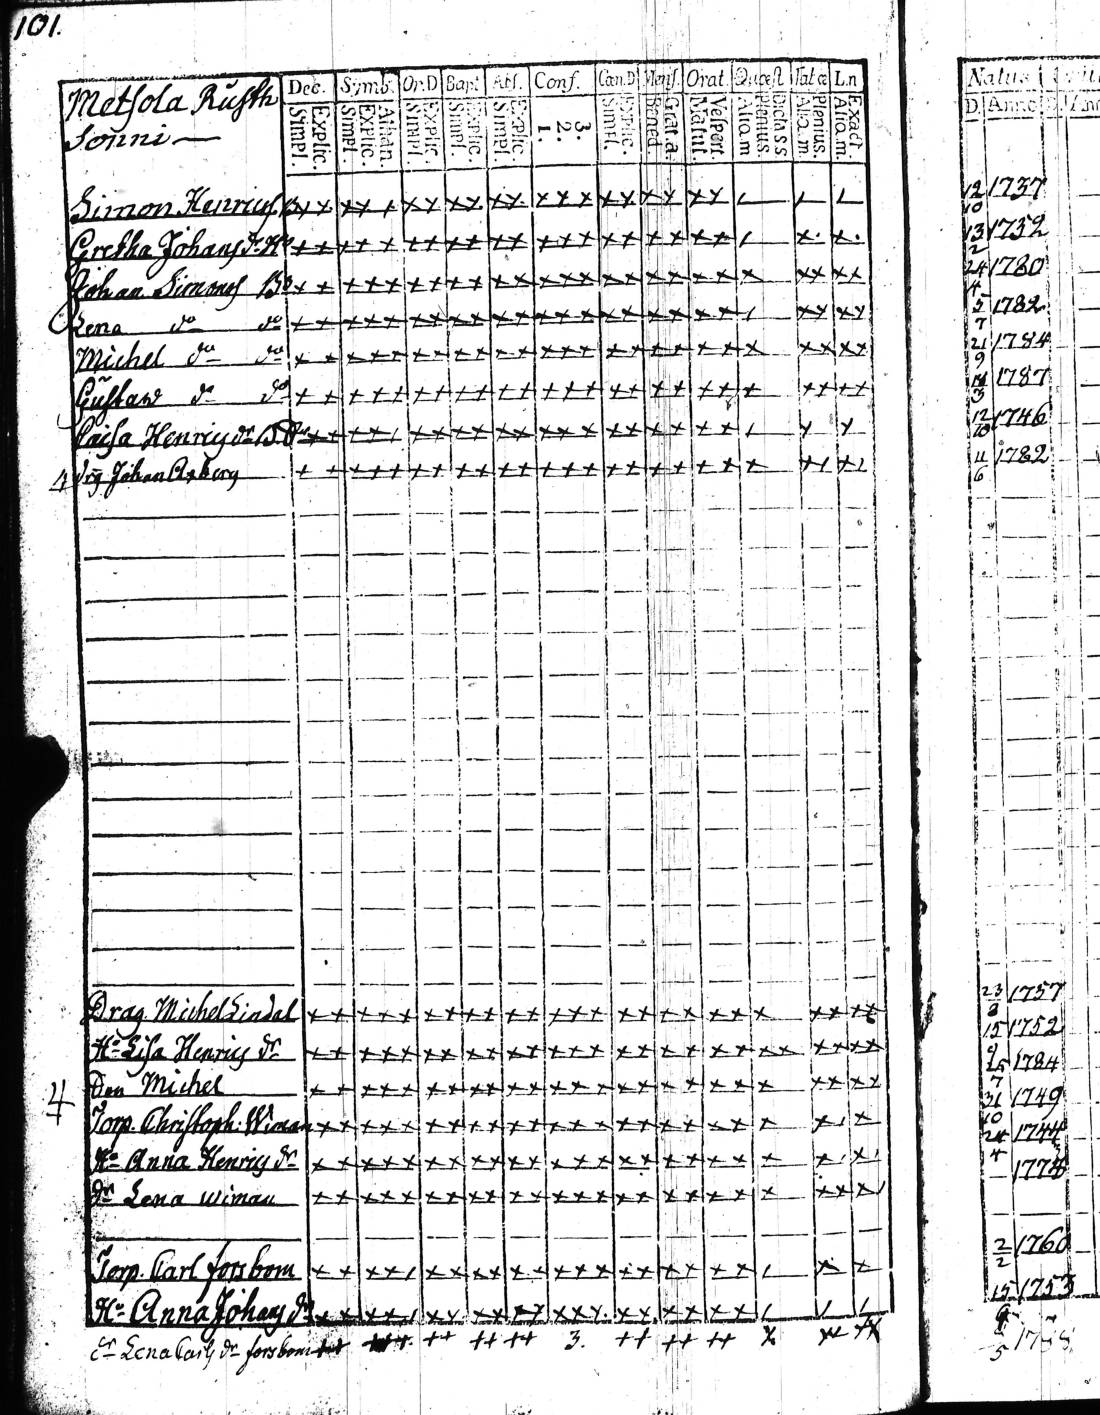 101.
Metsola Rusth
Sonni
Dec. Symb. Or.D Bapt Abs. Conf. Cœn.D Mens. Orat. Quæst Tabæ Ln
Simpl. Explic. Simpl. Explic. Athan. Simpl. Explic. Simpl. Explic. Simpl. Explic. 1. 2. 3. Simpl. Explic. Bened Grat.a Matut. Vespert. Aliq.m Plenius. Dicta SS Aliq.m. Plenius. Aliq.m. Exact.
Natus
D. Anno D. Anno
Simon Henrics 12/10 1737
Gretha Johans dr Hu 13/2 1752
Johan Simons 24/4 1780
Lena do do 5/7 1782
Michel do do 21/9 1784
Gustaw do do 14/3 1787
Caisa Henrics dr 12/10 1746
4 Johan Axberg 11/6 1782
Drag. Michel Lindal 23/8 1757
Hu Lisa Henrics dr 15/9 1752
Son Michel 25/7 1784
4 Torp. Christoph. Wiman 31/10 1749
Hu Anna Henrics dr 24/4 1744
dr Lena Wiman 1778
Torp. Carl Forsbom 2/2 1760
Hu Anna Johans dr 15/9 1753
dr Lena Carls dr forsbom 3. 5 1788